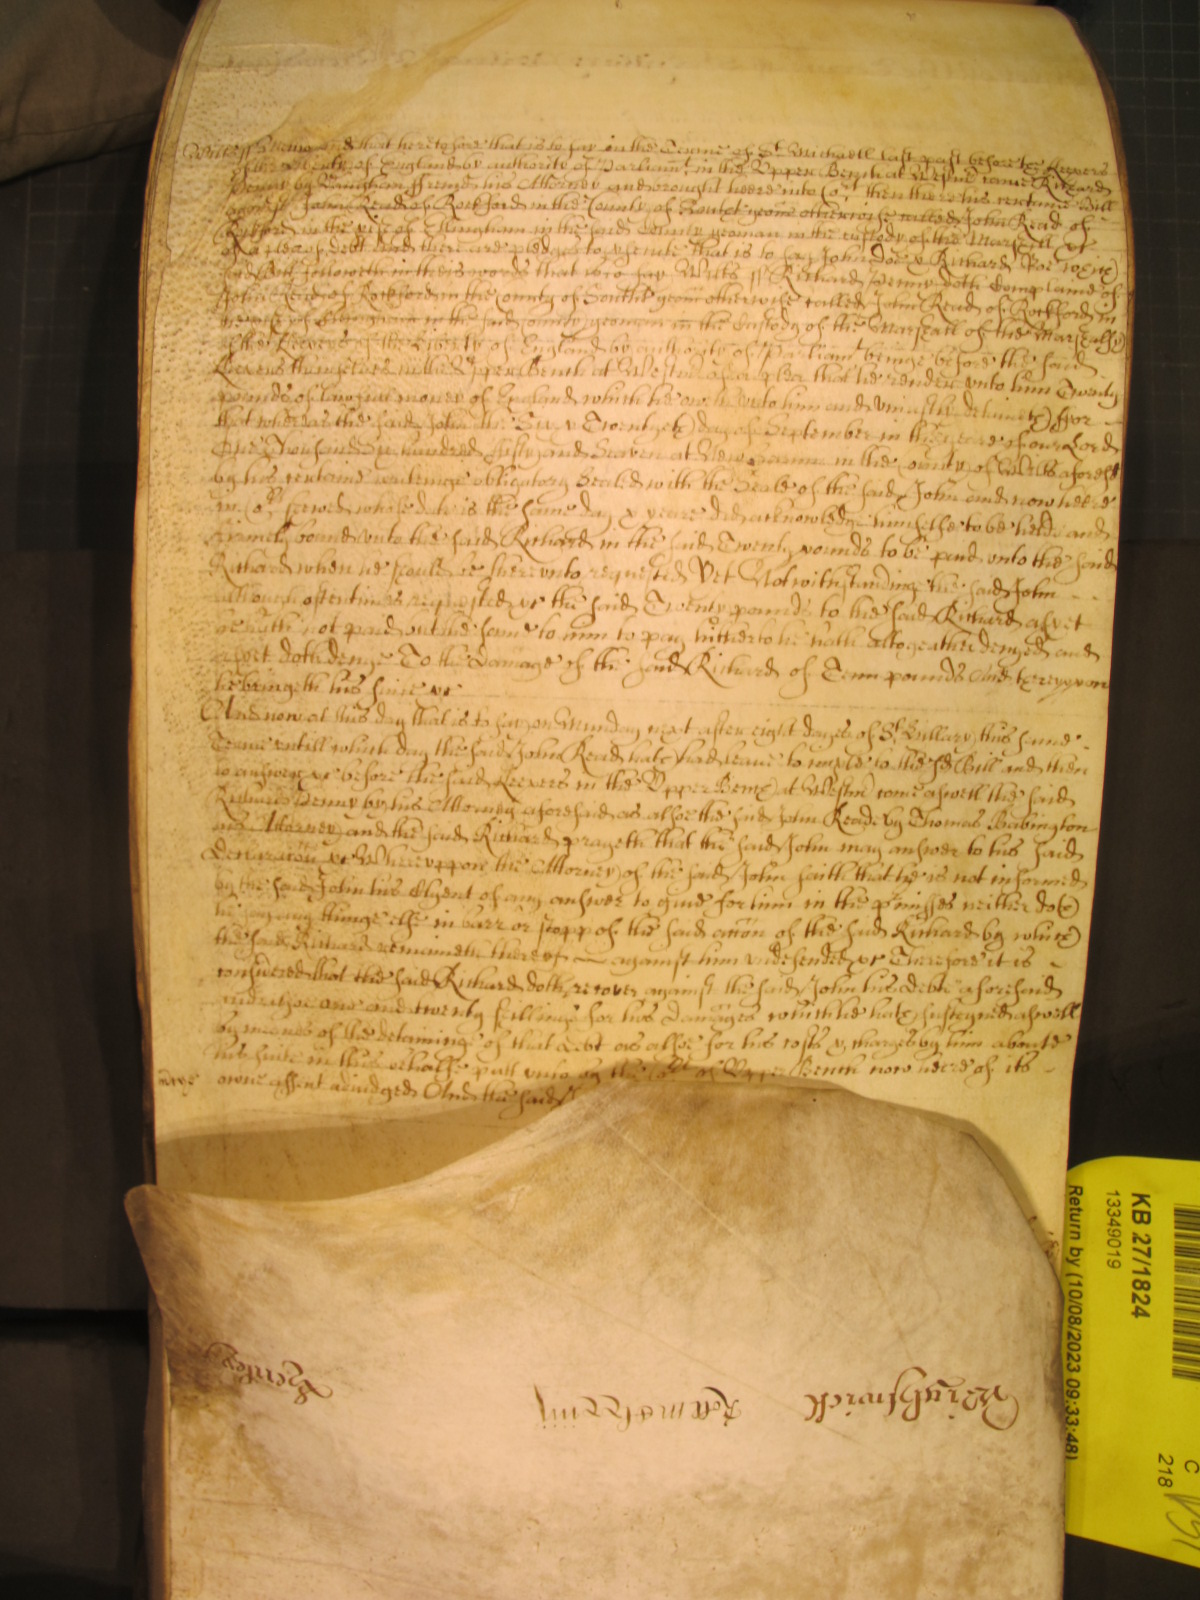 Wilts ss Memo and that heretofore that is to say in the Terme of St Michaell last past before the keepers
of the liberty of England by authority of Parliamt in the Upper Bench at Westmr came Richard
Penny by Vaughan his Attorney and brought heere into Cort then there his certaine Bill
against John Read of Rockford in the County of South yeom otherwise called John Read of
Rockford in the of Ellingham in the said County yeoman in the custody of the Marshall &c
of a plea of debt And there are pledges to prosecute that is to say John Doe & Richard Roe wch
said Bill followeth in theis words that is to say Wilts ss Richard Penny doth Complaine of
John Read of Rockford in the County of South yeom otherwise called John Read of Rockford in
the of Ellingham in the said County yeoman in the Custody of the Marshall of the Marshalsy
of the Keepers of the liberty of England by authority of Parliamt beinge before the said
Keepers themselves in the Upper Bench at Westmr of a plea that he render unto him Twenty
pounds of lawfull money of England which he oweth unto him and uniustly detaineth For
that whereas the said John the Six & Twentyeth day of September in the yeare of our Lord
One Thousand Six hundred fifty and Seaven at New Sarum in the County of Wilts aforesd
by his certaine writeinge obligatory Sealed with the Seale of the said John and now heere
in Cort shewed whose date is the same day & yeare did acknowledge himselfe to be held and
firmely bound unto the said Richard in the said Twenty pounds to be paid unto the said
Richard when he should be thereunto requested Yet Notwithstanding the said John
although oftentimes requested &c the said Twenty pounds to the said Richard as yet
he hath not paid but the same to him to pay hitherto he hath altogeather denyed and
as yet doth denye To the Damage of the said Richard of Tenn pounds And thereupon
he bringeth his suite &c
And now at this day that is to say on Munday next after eight dayes of St Hillary this same
Terme untill which day the said John Read hath had leave to imple to the sd Bill and then
to answer &c before the said keepers in the Upper Bench at Westmr come aswell the said
Richard Penny by his Attorney aforesaid as alsoe the said John Read by Thomas Babington
his Attorney and the said Richard prayeth that the said John may answer to his said
Declaracon &c Whereuppon the Attorney of the said John saith that he is not informed
by the said John his Clyent of any answer to give for him in the pmisses neither doth
he say any thinge else in barr or stopp of the said accon of the said Richard by which
the said Richard remaineth thereof — against him undefended &c Therefore it is
considered that the said Richard doth recover against the said John his debt aforesaid
and alsoe one and twenty shillings for his Damages which he hath susteyned aswell
by meanes of the detaininge of that debt as alsoe for his costs & charges by him aboute
his suite in this behalfe putt unto by the Cort of Upper Bench now heere of its
owne assent adiudged And the said
Wrightwick
KB 27/1824
13349019
Return by (10/08/2023 09:33:48)
C
218